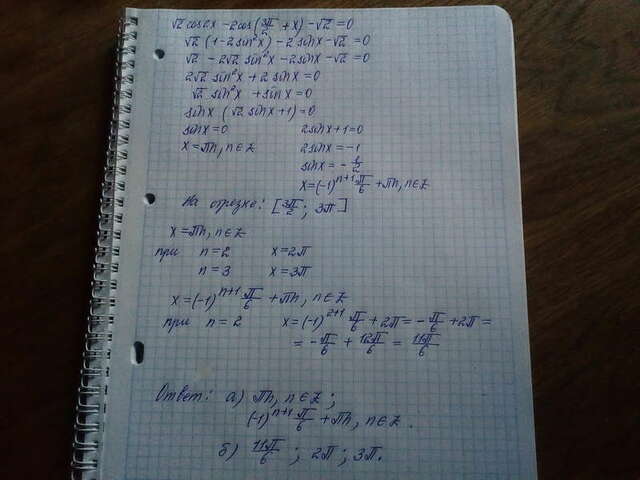 √2 cos2x - 2cos(3π/2 + x) - √2 = 0
√2 (1 - 2sin²x) - 2 sinx - √2 = 0
√2 - 2√2 sin²x - 2sinx - √2 = 0
2√2 sin²x + 2 sinx = 0
√2 sin²x + sinx = 0
sinx (√2 sinx + 1) = 0
sinx = 0 2sinx + 1 = 0
x = πn, n ∈ Z 2sinx = -1
sinx = -1/2
x = (-1)ⁿ⁺¹ π/6 + πn, n ∈ Z
На отрезке: [3π/2 ; 3π]
x = πn, n ∈ Z
при n = 2 x = 2π
n = 3 x = 3π
x = (-1)ⁿ⁺¹ π/6 + πn, n ∈ Z
при n = 2 x = (-1)²⁺¹ π/6 + 2π = -π/6 + 2π =
= -π/6 + 12π/6 = 11π/6
Ответ: а) πn, n ∈ Z ;
(-1)ⁿ⁺¹ π/6 + πn, n ∈ Z .
б) 11π/6 ; 2π ; 3π.